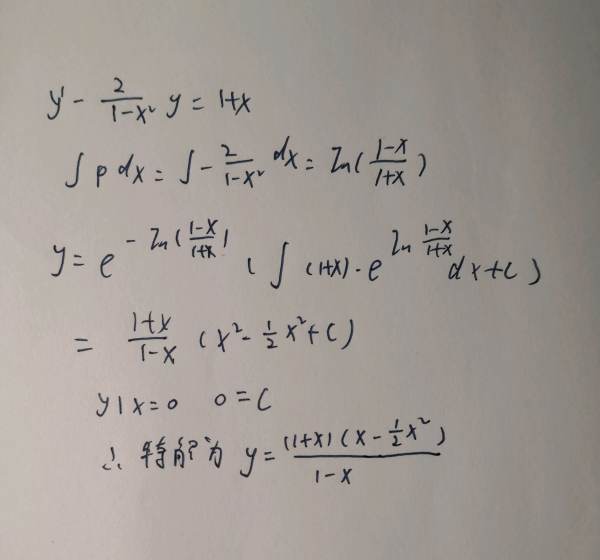 y' - \frac{2}{1-x²} y = 1+x
∫ p dx = ∫ - \frac{2}{1-x²} dx = ln(\frac{1-x}{1+x})
y = e^{-ln(\frac{1-x}{1+x})} ( ∫ (1+x) · e^{ln \frac{1-x}{1+x}} dx + C )
= \frac{1+x}{1-x} (x² - \frac{1}{2}x² + C)
y|x=0 0=C
∴ 特解为 y = \frac{(1+x)(x - \frac{1}{2}x²)}{1-x}